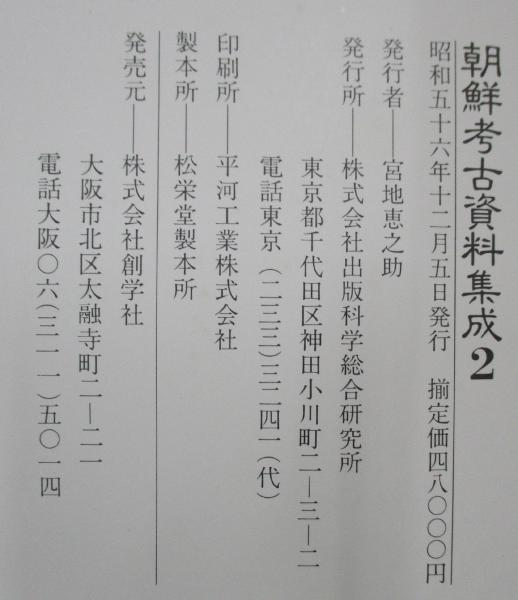 朝鮮考古資料集成2
昭和五十六年十二月五日発行　揃定価四八〇〇〇円
発行者――宮地恵之助
発行所――株式会社出版科学総合研究所
東京都千代田区神田小川町二―三―二
電話東京（二三三）三二四一（代）
印刷所――平河工業株式会社
製本所――松栄堂製本所
発売元――株式会社創学社
大阪市北区太融寺町二―二一
電話大阪〇六（三一一）五〇一四